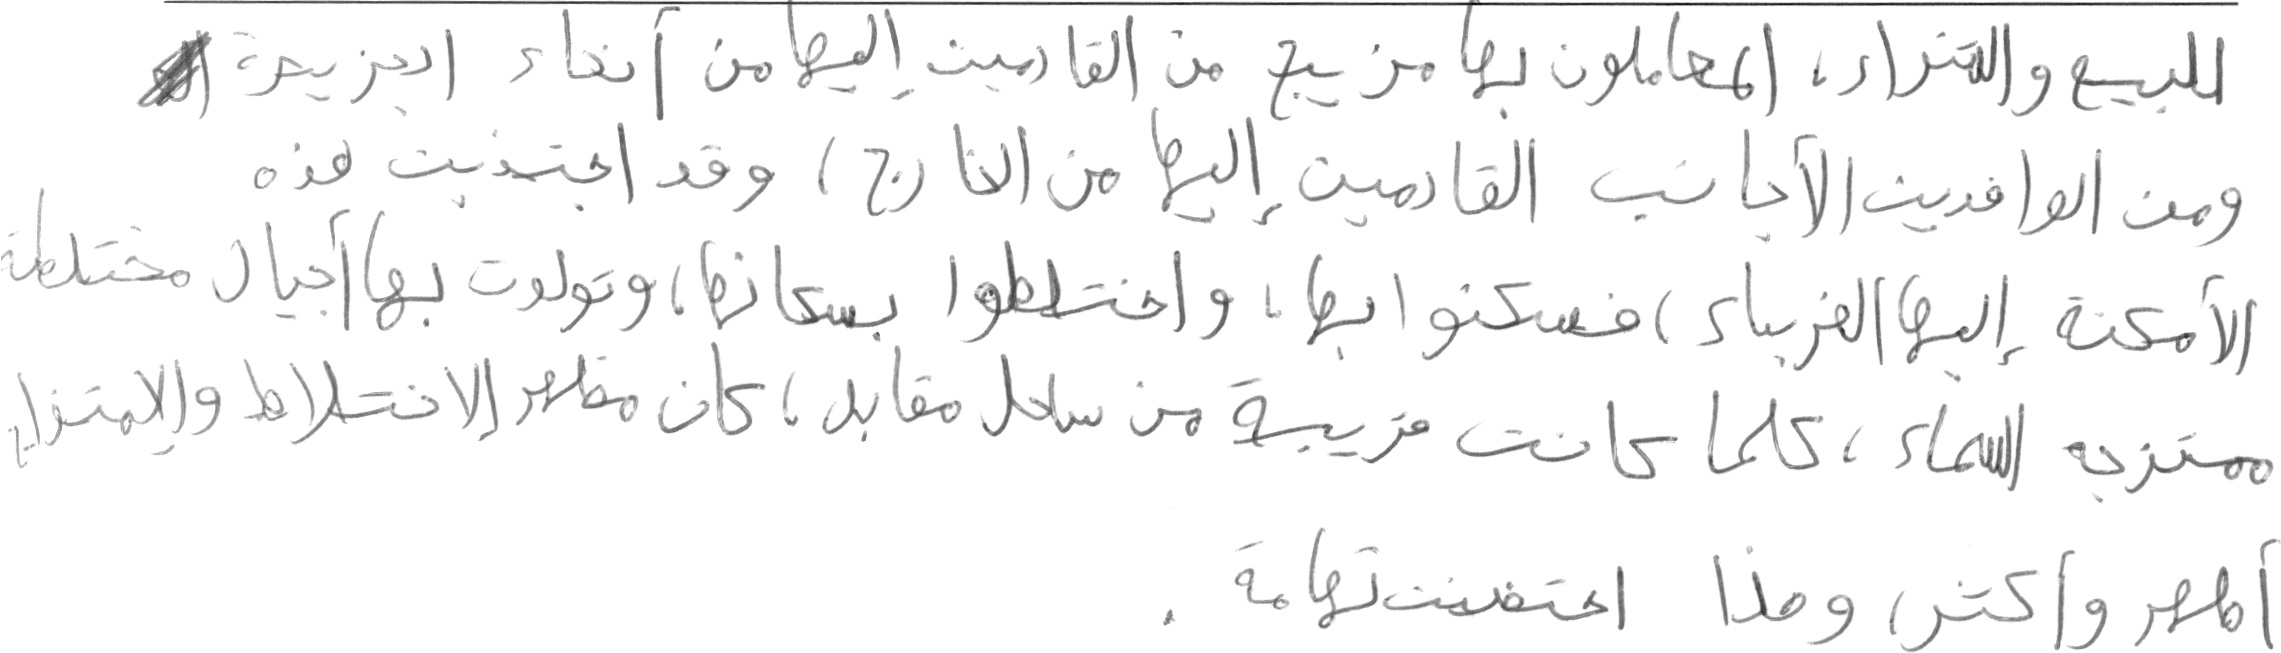 للبيع والشراء، المعاملون بها مزيج من القادمين إليها من أنحاء الجزيرة
ومن الوافدين الأجانب القادمين إليها من الخارج، وقد اجتذبت هذه
الأمكنة إليها الغرباء، فسكنوا بها، واختلطوا بسكانها، وتولدت بها أجيال مختلطة
ممتزجه السماء، كلما كانت قريبة من ساحل مقابل، كان مظهر الاختلاط والامتزاج
أظهر وأكثر، وهذا احتضنت تهامة .